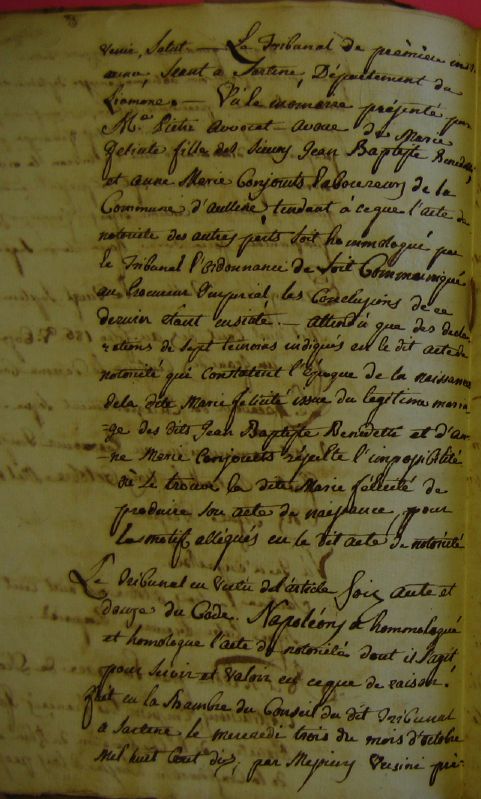 venir, Salut — Le Tribunal de première ins
tance Séant a Sartene, Département du
Liamone. — Vû le mémoire présenté par
Me. Pietri avocat – avoué de Marie
felicité fille des Sieurs Jean Baptiste Benedetti
et anne Marie Conjoints laboureurs de la
Commune d'aullene, tendant à ceque l'acte de
notorieté des autres parts Soit hommologué par
le Tribunal l'ordonnance de Soit Communiqué
au Procureur Imperial les Conclusions de ce
dernier étant ensuite. — attendu que des decla
rations de Sept temoins indiqués en le dit acte de
notorieté qui Constatent l'Epoque de la naissance
dela dite Marie felicité issue du legitime maria
-ge des dits Jean Baptiste Benedetti et d'an
-ne Marie Conjoints résulte l'impossibilité
où Se trouve la dite Marie félicité de
produire Son acte de naissance, pour
les motifs allégués en le dit acte de notorieté
Le Tribunal en Vertu del'article Soix ante et
douze du Code Napoléon a hommologué
et homologue l'acte de notorieté dont il S'agit
pour Servir et Valoir en ceque de raison.
fait en la Chambre du Conseil du dit Tribunal
a Sartene le mercredi trois du mois d'octobre
Mil huit Cent dix, par Messieurs pré-